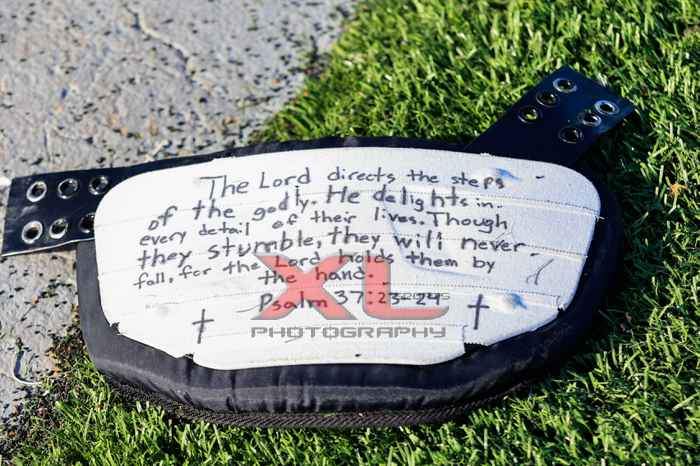 The Lord directs the steps
of the godly. He delights in
every detail of their lives. Though
they stumble, they will never
fall, for the Lord holds them by
the hand.
Psalm 37:23-24
XL
PHOTOGRAPHY